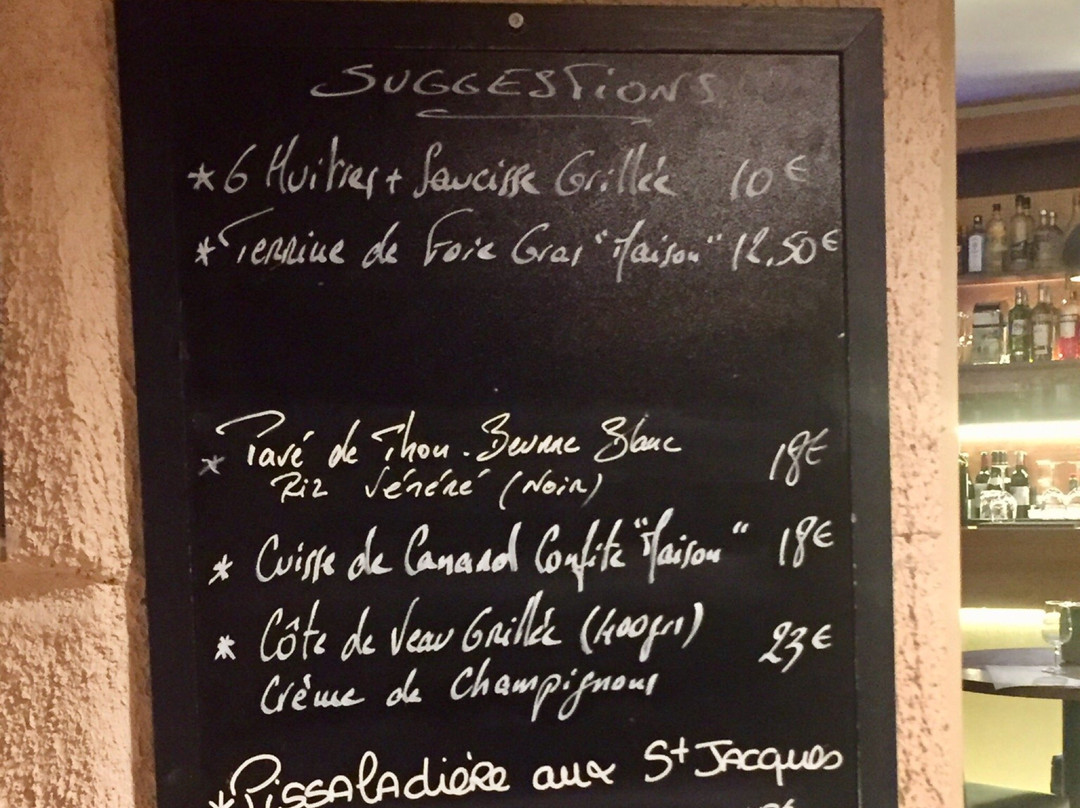 SUGGESTIONS
* 6 Huitres + Saucisse Grillée 10€
* Terrine de Foie Gras "Maison" 12.50€
* Pavé de Thon. Beurre Blanc 18€
Riz Vénéré (Noir)
* Cuisse de Canard Confite "Maison" 18€
* Côte de Veau Grillée (400grs) 23€
Crème de Champignons
* Pissaladière aux St Jacques